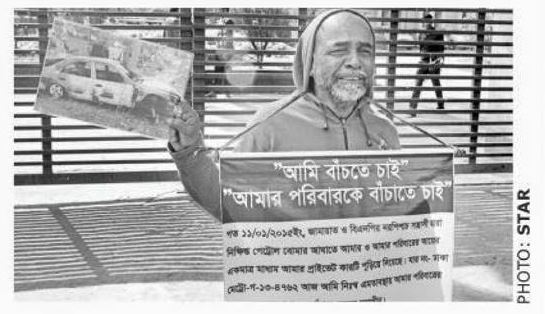 "আমি বাঁচতে চাই"
"আমার পরিবারকে বাঁচাতে চাই"
গত ১১/০১/২০১৫ইং, জামায়াত ও বিএনপির নরপিশাচ সন্ত্রাসী দ্বারা
নিক্ষিপ্ত পেট্রোল বোমার আঘাতে আমার ও আমার পরিবারের আয়ের
একমাত্র মাধ্যম আমার প্রাইভেট কারটি পুড়িয়ে দিয়েছে। যার নং- ঢাকা
মেট্রো-গ-১৩-৪৭৬২ আজ আমি নিঃস্ব এমতাবস্থায় আমার পরিবারের
PHOTO: STAR